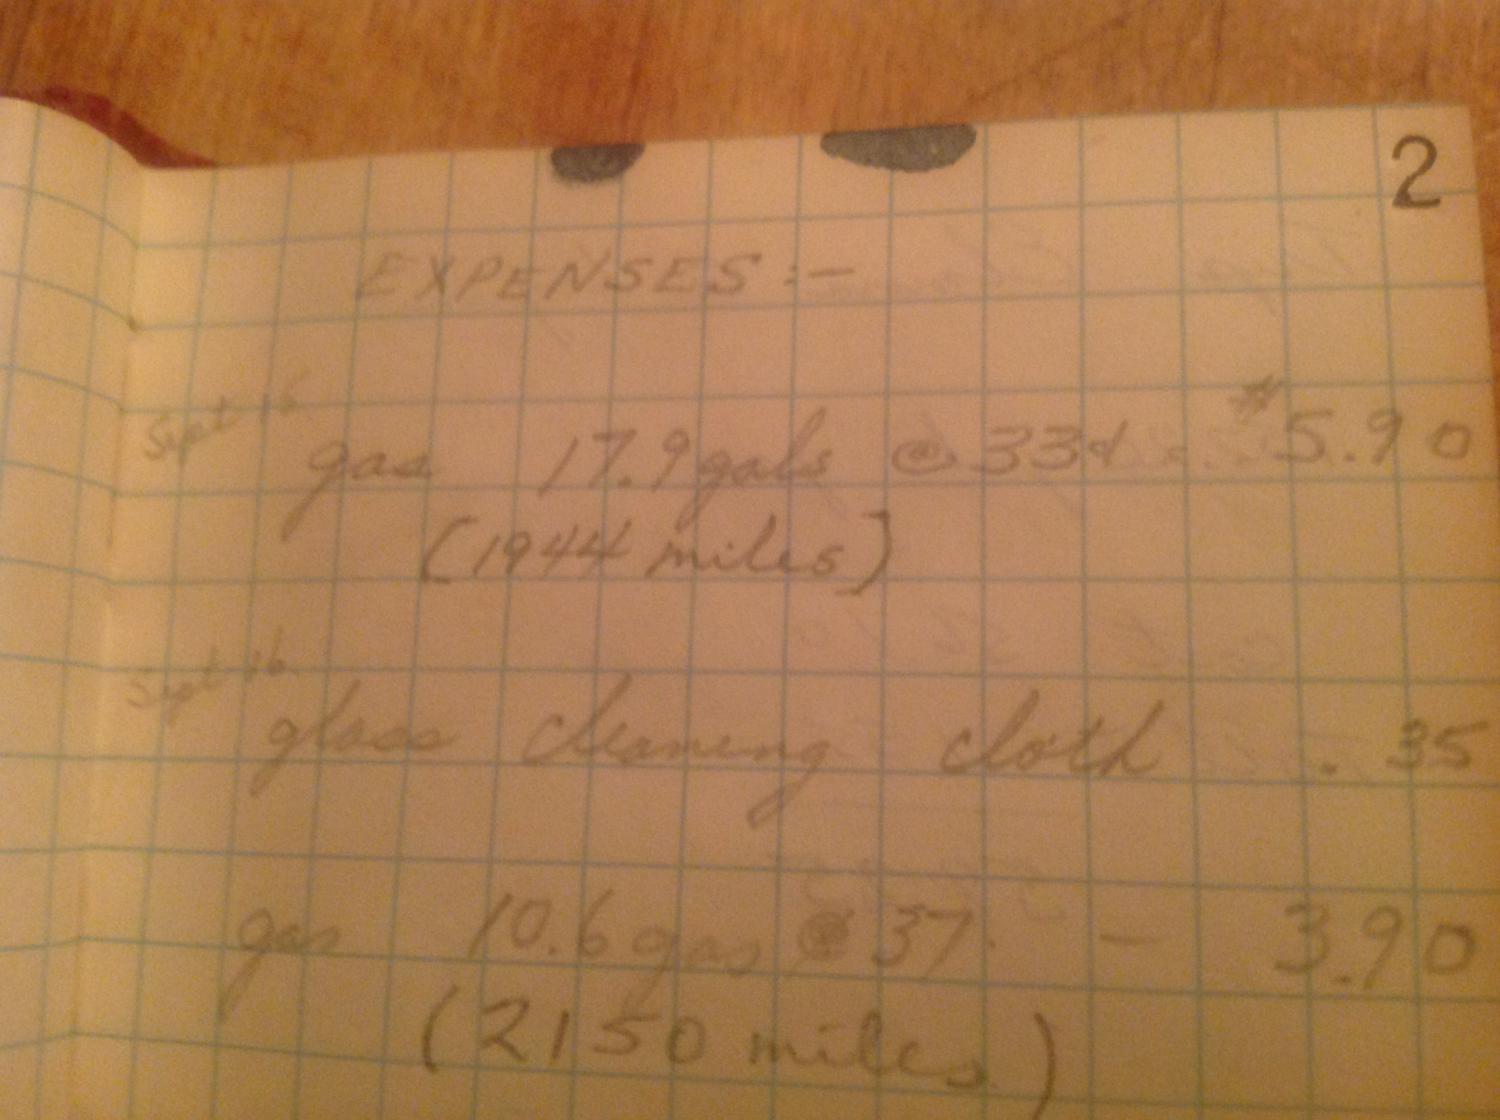 2
EXPENSES:-
Sept 16
gas 17.9 gals @ 33¢ = $5.90
(1944 miles)
Sept 16
glass cleaning cloth .35
gas 10.6 gas @ 37. — 3.90
(2150 miles)